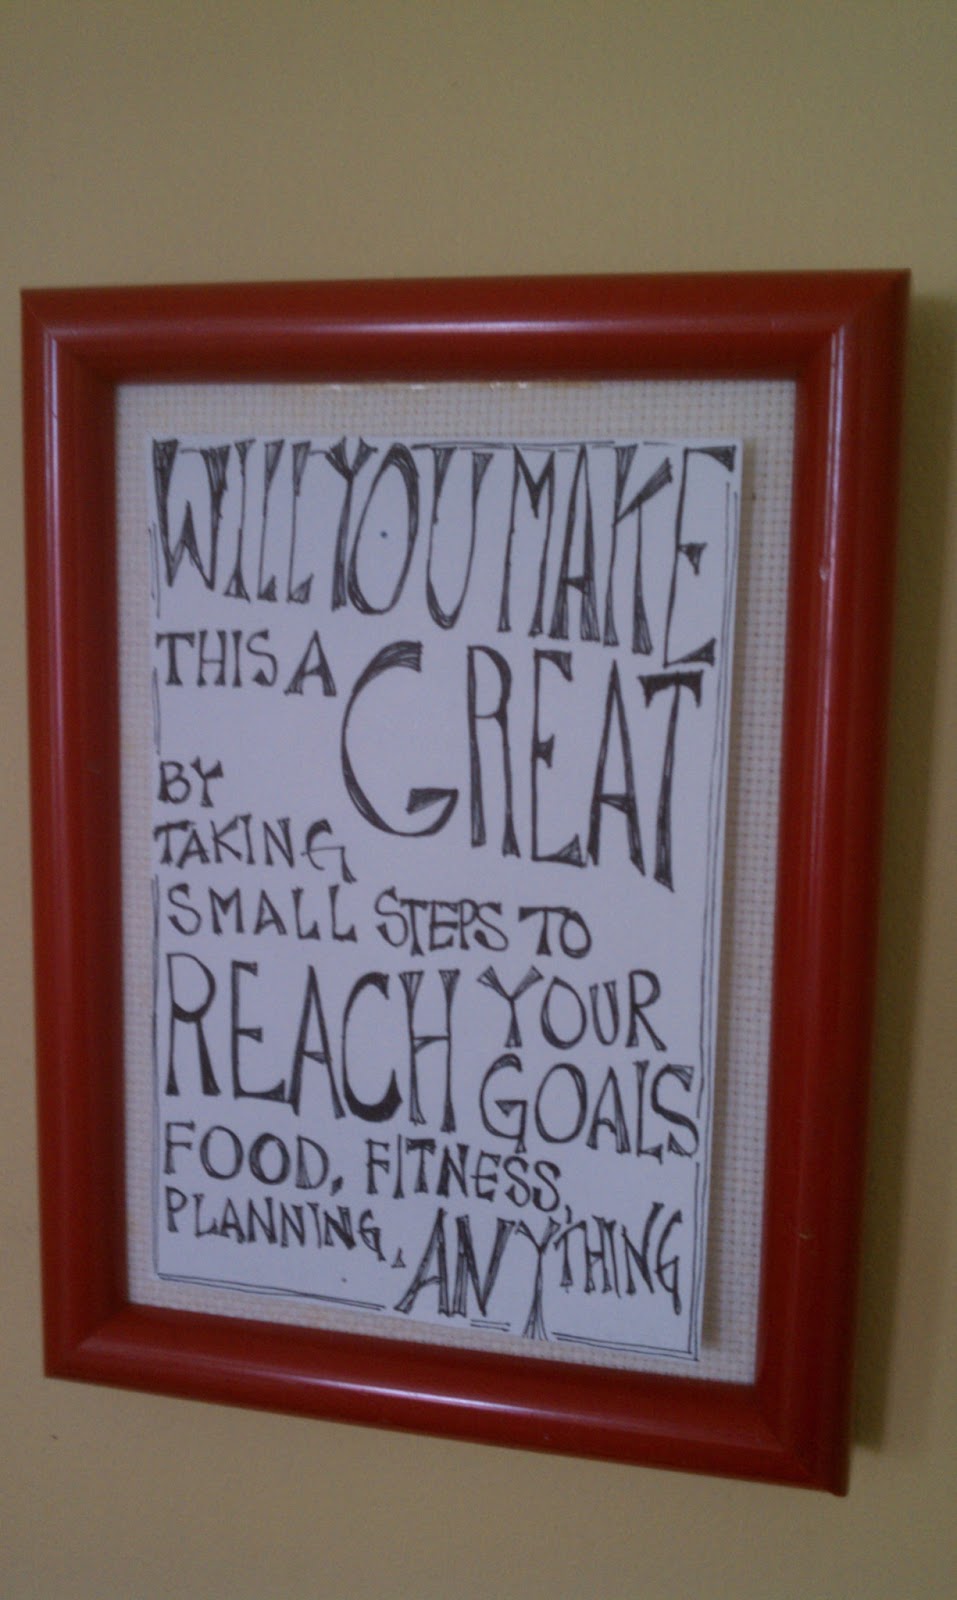 WILL YOU MAKE
THIS A GREAT
BY
TAKING
SMALL STEPS TO
REACH YOUR
GOALS
FOOD, FITNESS,
PLANNING, ANYTHING